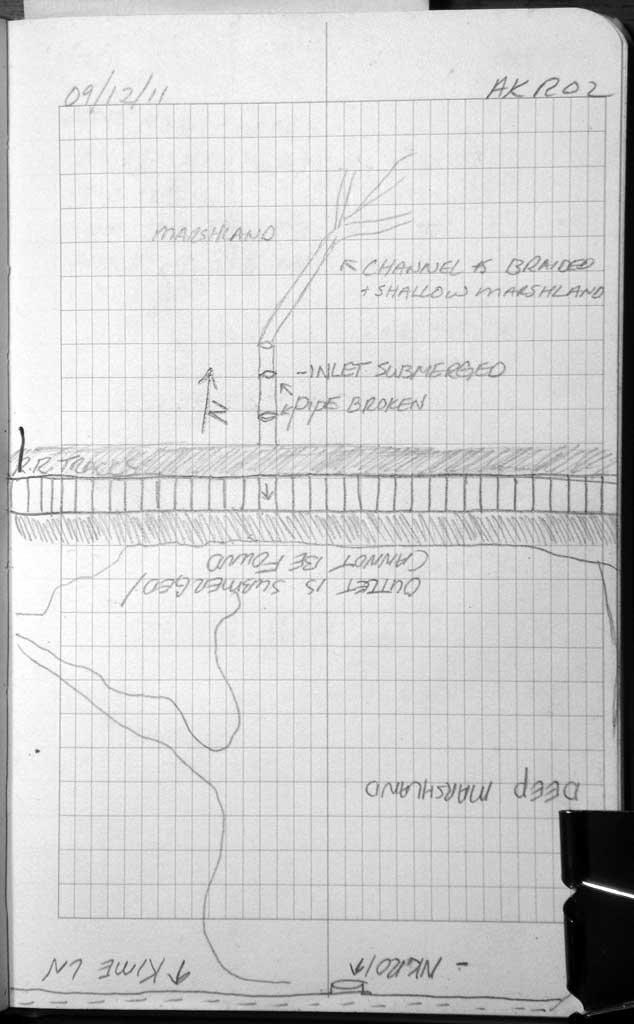 09/12/11
AKR02
MARSHLAND
CHANNEL IS BRAIDED
+ SHALLOW MARSHLAND
- INLET SUBMERGED
PIPE BROKEN
N
R.R. TRACKS
OUTLET IS SUBMERGED/
CANNOT BE FOUND
DEEP MARSHLAND
KIME LN
- NKR01